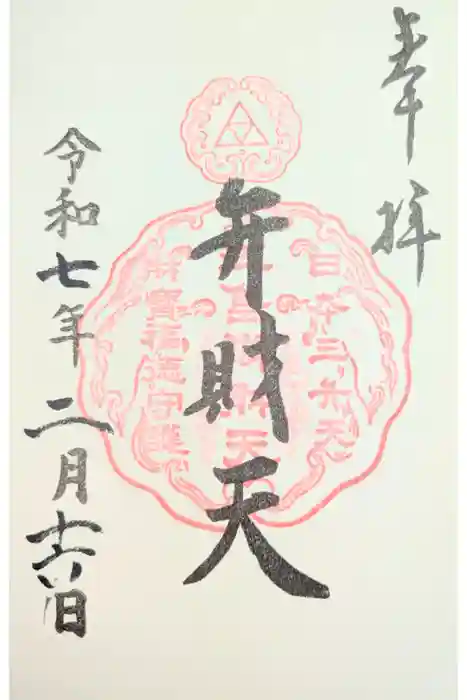 奉拝
日本三弁天
弁財天
財寳福徳守護
令和七年二月十六日